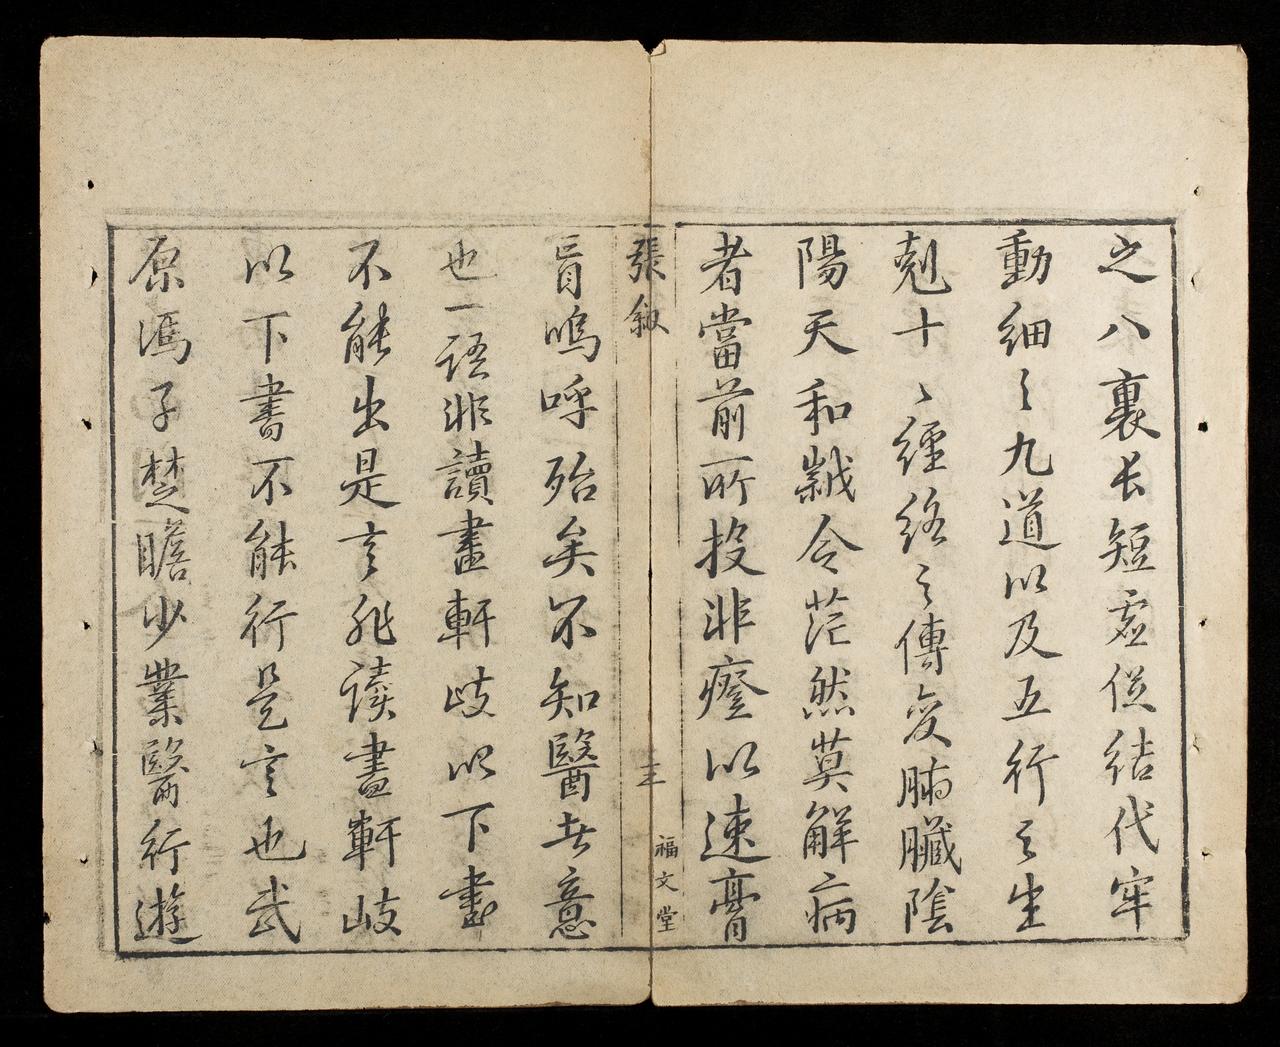 之八裏长短虛促結代牢
動細之九道以及五行之生
剋十二經絡之傳变腑臟陰
陽天和歲令茫然莫解病
者當前所投非瘥以速膏
張叙
三
福文堂
肓嗚呼殆矣不知醫者意
也一語非讀盡軒岐以下書
不能出是言非读盡軒岐
以下書不能行是言也武
原馮子楚瞻少業醫行遊